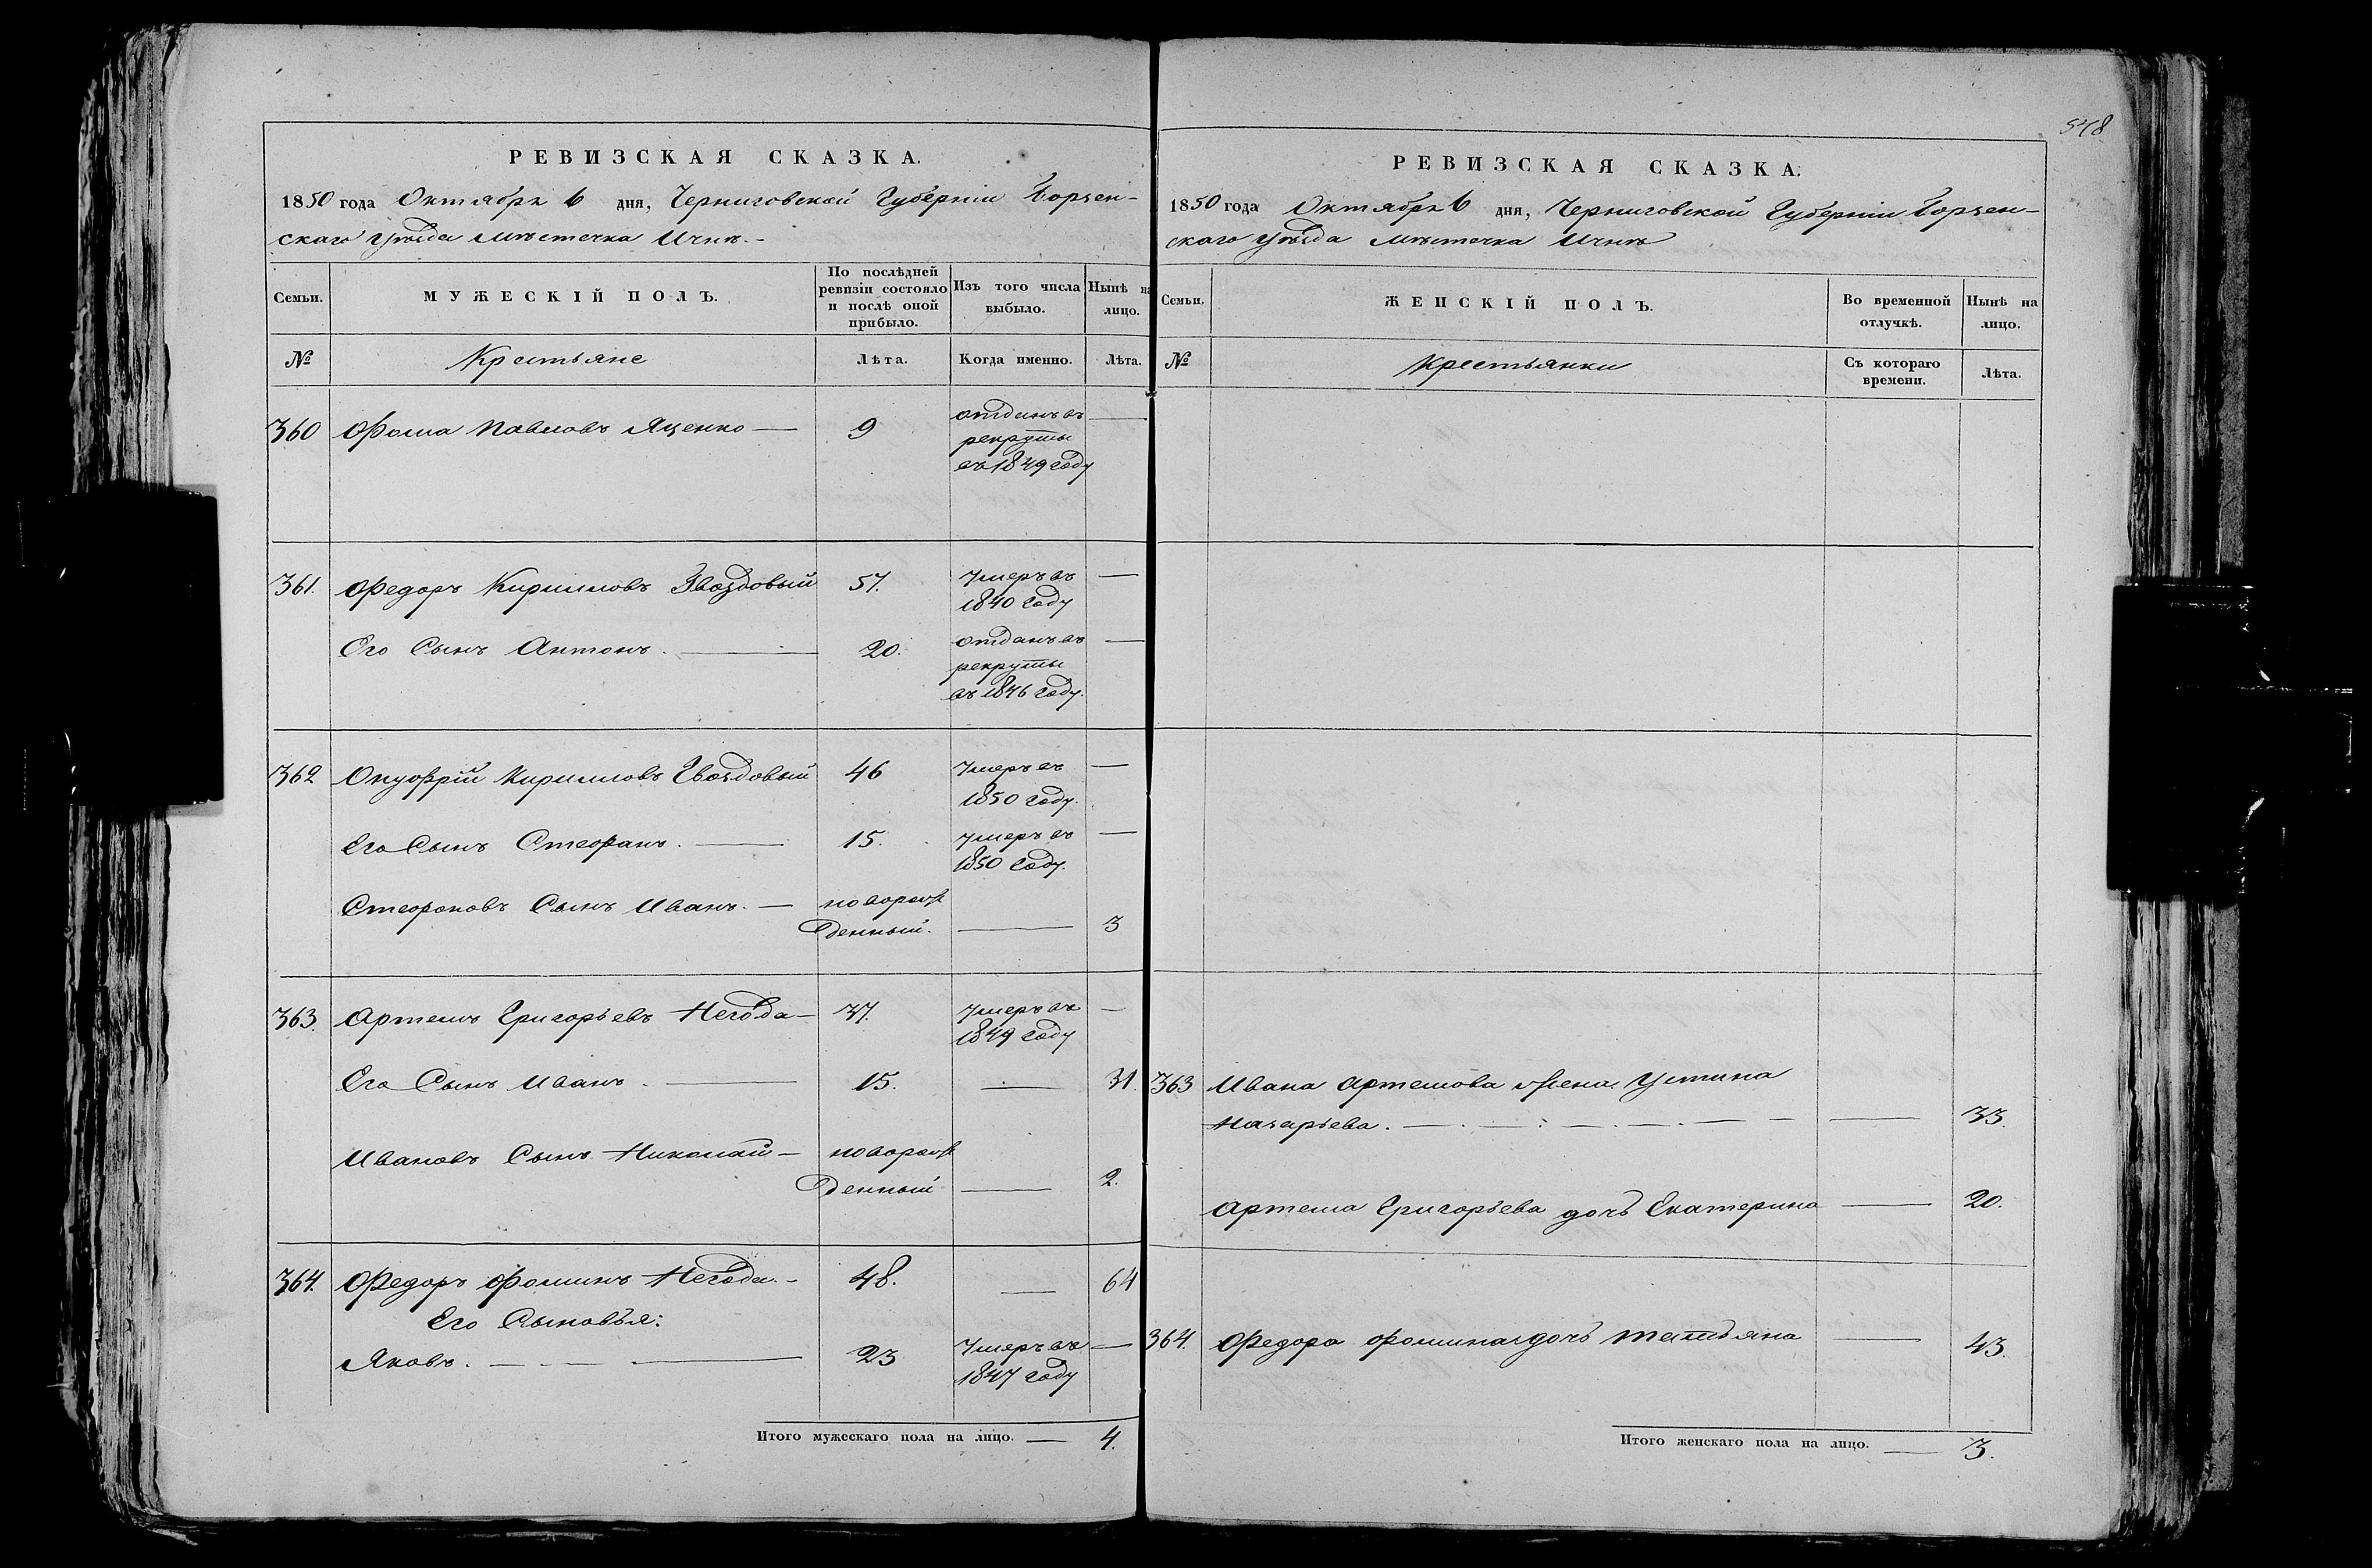 РЕВИЗСКАЯ СКАЗКА.
1850 года Октября 6 дня, Черниговской Губерніи Борзен-
скаго Уѣзда Мѣстечка Ични.-
Семьи.
МУЖЕСКІЙ ПОЛЪ.
По послѣдней ревизіи состояло и послѣ оной прибыло.
Изъ того числа выбыло.
Нынѣ на лицо.
№
Крестьяне
Лѣта.
Когда именно.
Лѣта.
360 Фома Павловъ Яценко — 9 отданъ въ —
рекруты
въ 1849 году
361. Федоръ Кириловъ Гвоздовый 57. Умеръ въ —
1840 году
Его Сынъ Антонъ. — 20. отданъ въ —
рекруты
въ 1846 году.
362 Онуфрій Кириловъ Гвоздовый 46 Умеръ въ —
1850 году.
Его Сынъ Стефанъ. — 15. Умеръ въ —
1850 году.
Стефановъ Сынъ Иванъ. — новорож
денный. — 3
363. Артемъ Григорьевъ Негода — 37. Умеръ въ —
1849 году
Его Сынъ Иванъ. — 15. — 31.
Ивановъ Сынъ Николай — новорож
денный — 2.
364. Федоръ Фоминъ Негода. - 48. — 64
Его Сыновья:
Яковъ. — 23 Умеръ въ —
1847 году
Итого мужескаго пола на лицо. — 4.
548
РЕВИЗСКАЯ СКАЗКА.
1850 года Октября 6 дня, Черниговской Губерніи Борзен-
скаго Уѣзда Мѣстечка Ични
Семьи.
ЖЕНСКІЙ ПОЛЪ.
Во временной отлучкѣ.
Нынѣ на лицо.
№
Крестьянки
Съ котораго времени.
Лѣта.
363 Ивана Артемова жена Устина
Назарьева. — — 33.
Артема Григорьева дочь Екатерина — 20.
364. Федора Фомина дочь Татьяна — 43.
Итого женскаго пола на лицо. — 3.